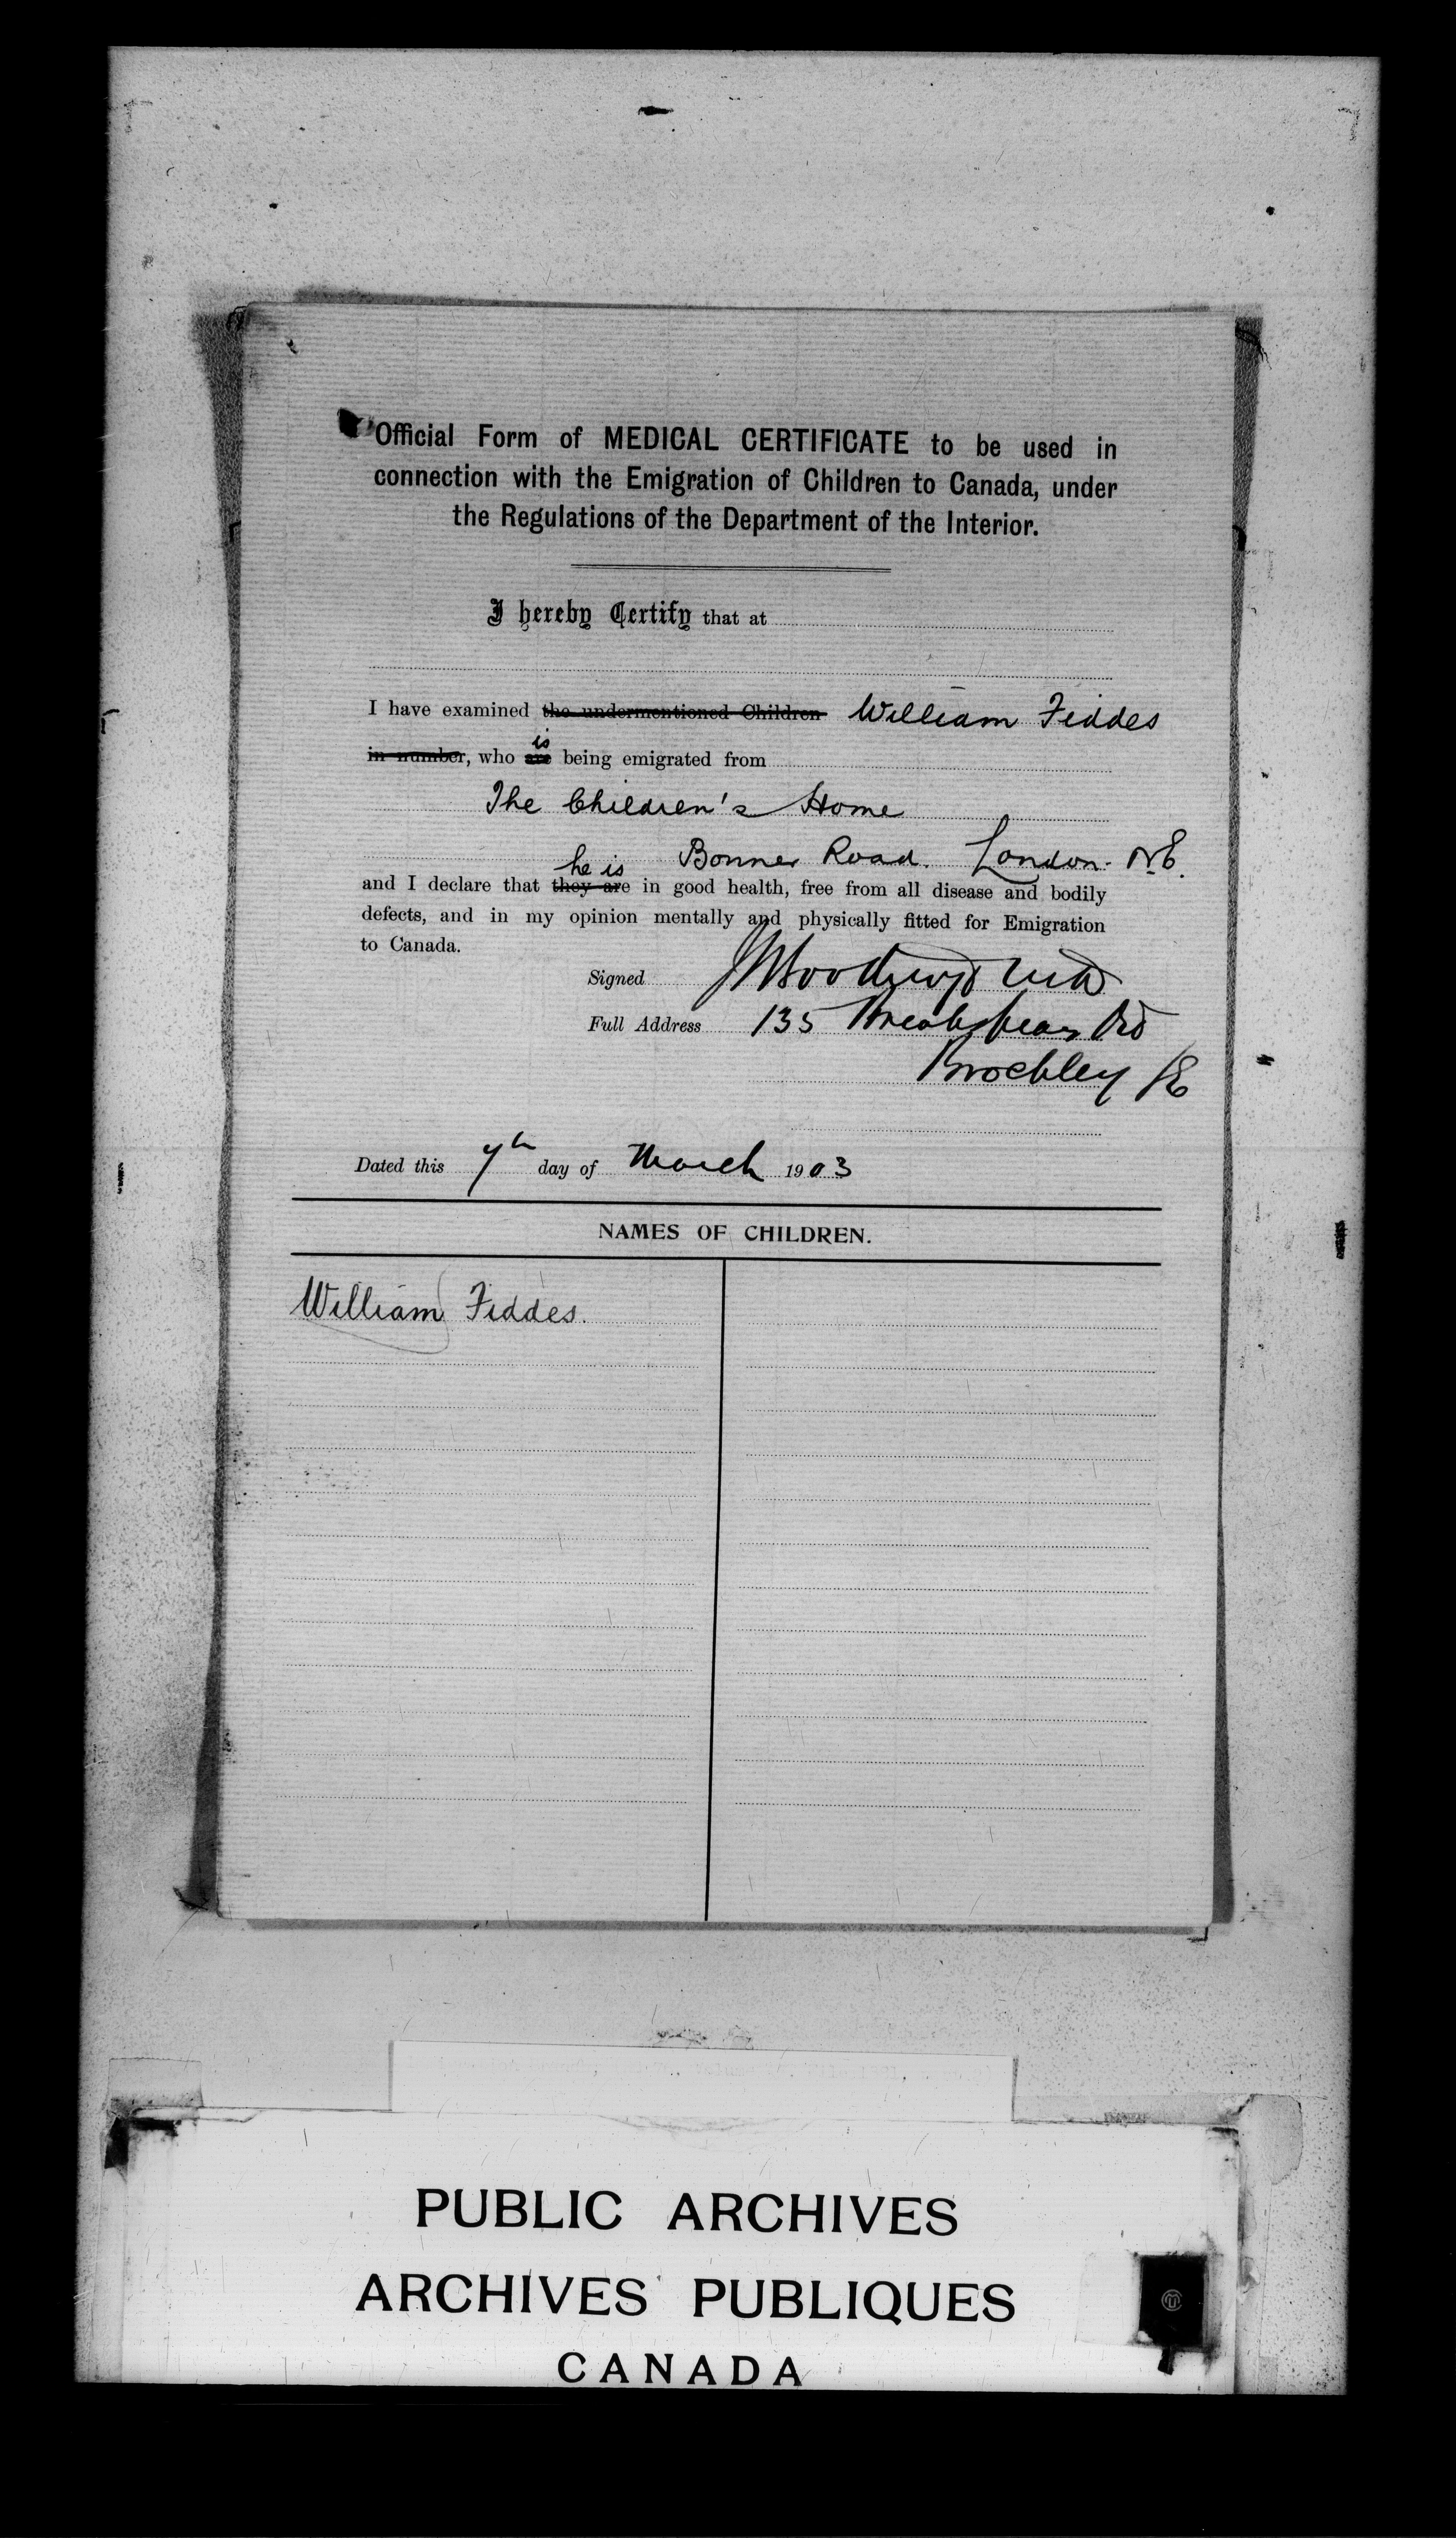 Official Form of MEDICAL CERTIFICATE to be used in
connection with the Emigration of Children to Canada, under
the Regulations of the Department of the Interior.
I hereby Certify that at
I have examined the undermentioned Children William Fiddes
in number, who are is being emigrated from
The Children's Home
Bonner Road. London. N.E.
he is
and I declare that they are in good health, free from all disease and bodily
defects, and in my opinion mentally and physically fitted for Emigration
to Canada.
Signed
Full Address 135 Breakspears Rd
Brockley SE
Dated this 7th day of March 1903
NAMES OF CHILDREN.
William Fiddes.
PUBLIC ARCHIVES
ARCHIVES PUBLIQUES
CANADA